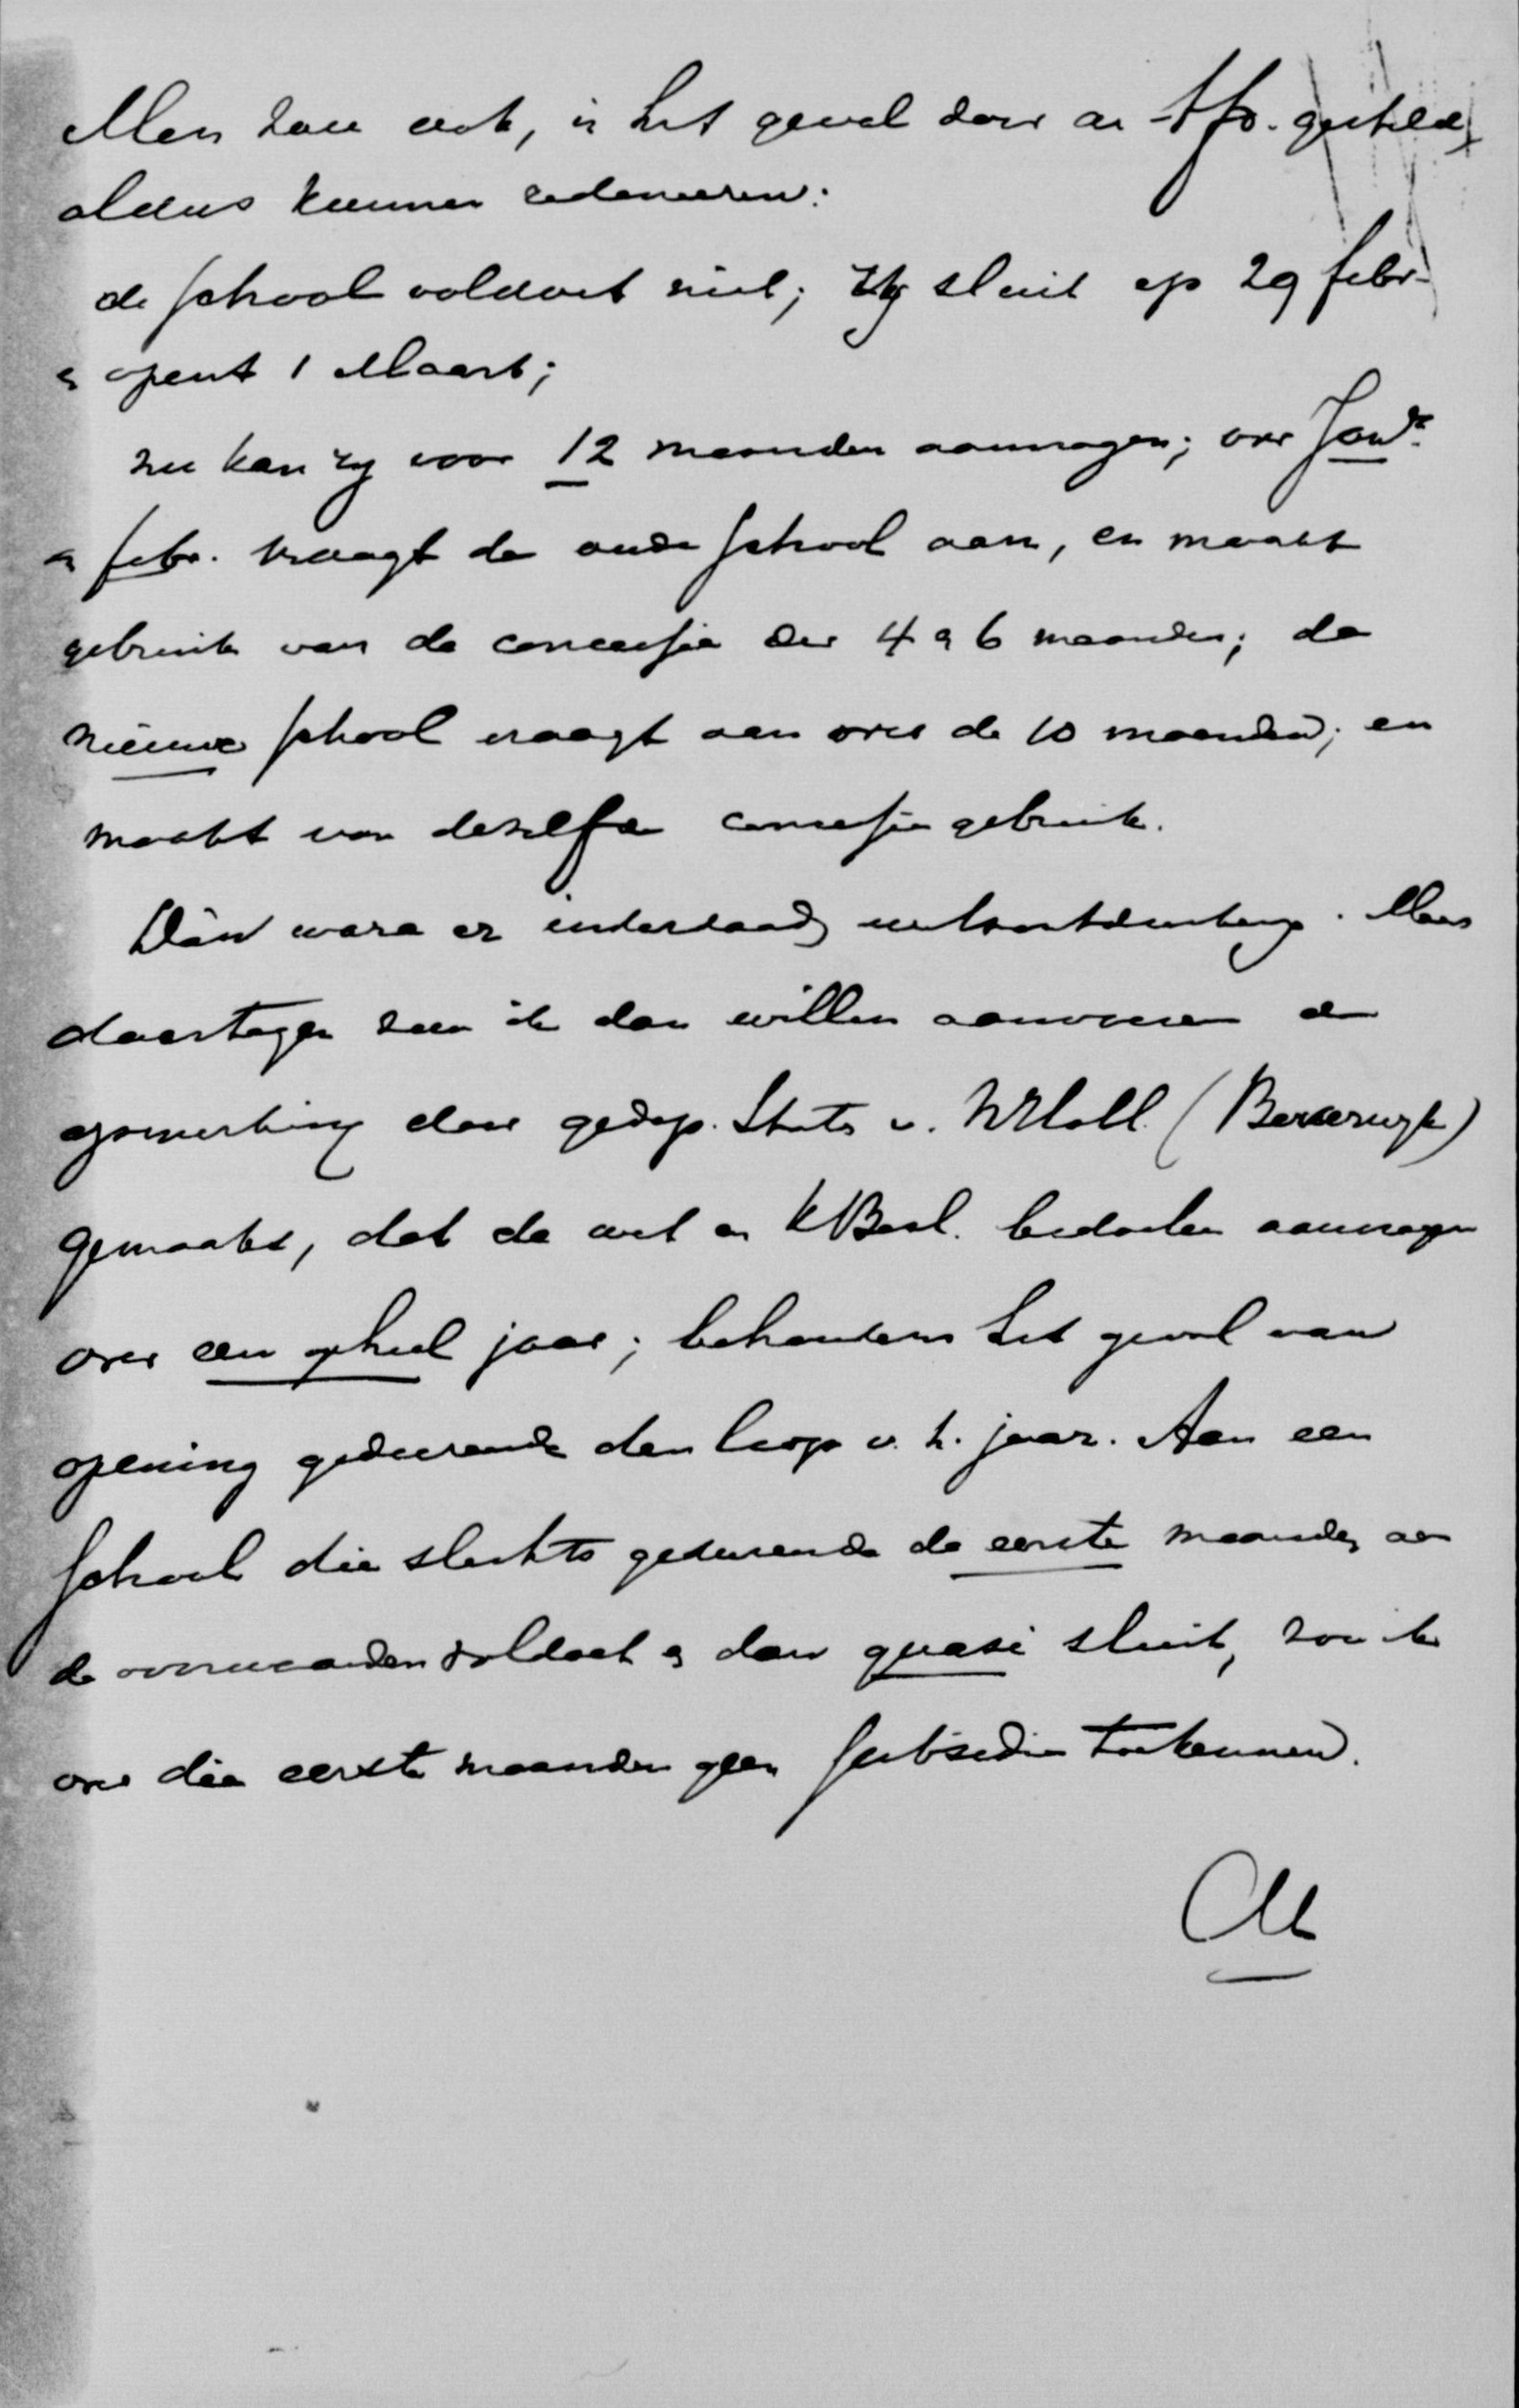 Men zou ook, in het geval door gesteld,
aldus kunnen redeneeren:
de school voldoet niet; zij sluit op 29 febr.
en opent 1 Maart;
nu kan zij voor 12 maanden aanvragen; over Janr.
en febr. vraagt de oude school aan, en maakt
gebruik van de concessie der 4 à 6 maanden; de
nieuwe school vraagt aan over de 10 maanden; en
maakt van dezelfde concessie gebruik.
Dàn ware er inderdaad wetsontduiking. Maar
daartegen zou ik dan willen aanvoeren de
opmerking door gedep. Staten v. NHoll. (Beverwijk)
gemaakt, dat de wet en KBesl. bedoelen aanvragen
over een geheel jaar; behoudens het geval van
opening gedurende den loop v. h. jaar. Aan een
school die slechts gedurende de eerste maanden aan
de voorwaarden voldoet en dan quasi sluit, zou ik
over die eerste maanden geen subsidie toekennen.